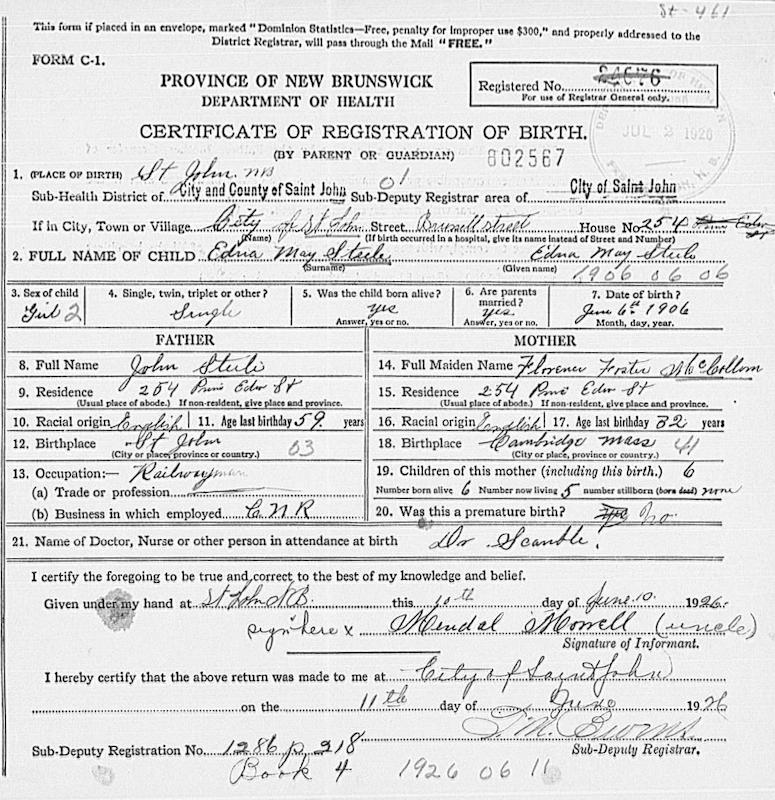 St-461
This form if placed in an envelope, marked "Dominion Statistics—Free, penalty for improper use $300," and properly addressed to the
District Registrar, will pass through the Mail "FREE."
FORM C-1.
PROVINCE OF NEW BRUNSWICK
DEPARTMENT OF HEALTH
Registered No. 24676
For use of Registrar General only.
CERTIFICATE OF REGISTRATION OF BIRTH.
JUL 2 1926
(BY PARENT OR GUARDIAN) 802567
1. (PLACE OF BIRTH) St John. NB
Sub-Health District of City and County of Saint John 01 Sub-Deputy Registrar area of City of Saint John
If in City, Town or Village City of St John Street Brussell street House No. 254
(Name) (If birth occurred in a hospital, give its name instead of Street and Number)
2. FULL NAME OF CHILD Edna May Steele Edna May Steele
(Surname) (Given name)
1906 06 06
3. Sex of child 4. Single, twin, triplet or other? 5. Was the child born alive? 6. Are parents married? 7. Date of birth?
Girl 2 Single yes yes June 6th 1906
Answer, yes or no. Answer, yes or no. Month, day, year.
FATHER MOTHER
8. Full Name John Steele 14. Full Maiden Name Florence Foster McCollom
9. Residence 254 Prince Edw St 15. Residence 254 Prince Edw St
(Usual place of abode.) If non-resident, give place and province. (Usual place of abode.) If non-resident, give place and province.
10. Racial origin English 11. Age last birthday 59 years 16. Racial origin English 17. Age last birthday 32 years
12. Birthplace St John 03 18. Birthplace Cambridge Mass 41
(City or place, province or country.) (City or place, province or country.)
13. Occupation:— Railwayman 19. Children of this mother (including this birth.) 6
(a) Trade or profession Number born alive 6 Number now living 5 number stillborn (born dead) none
(b) Business in which employed C N R 20. Was this a premature birth? No
21. Name of Doctor, Nurse or other person in attendance at birth Dr
I certify the foregoing to be true and correct to the best of my knowledge and belief.
Given under my hand at St John N.B. this 10th day of June 10. 1926.
sign here x Mendal Morrell (uncle)
Signature of Informant.
I hereby certify that the above return was made to me at City of Saint John
on the 11th day of June 1926
Sub-Deputy Registrar.
Sub-Deputy Registration No. 1286 p 218
Book 4 1926 06 11